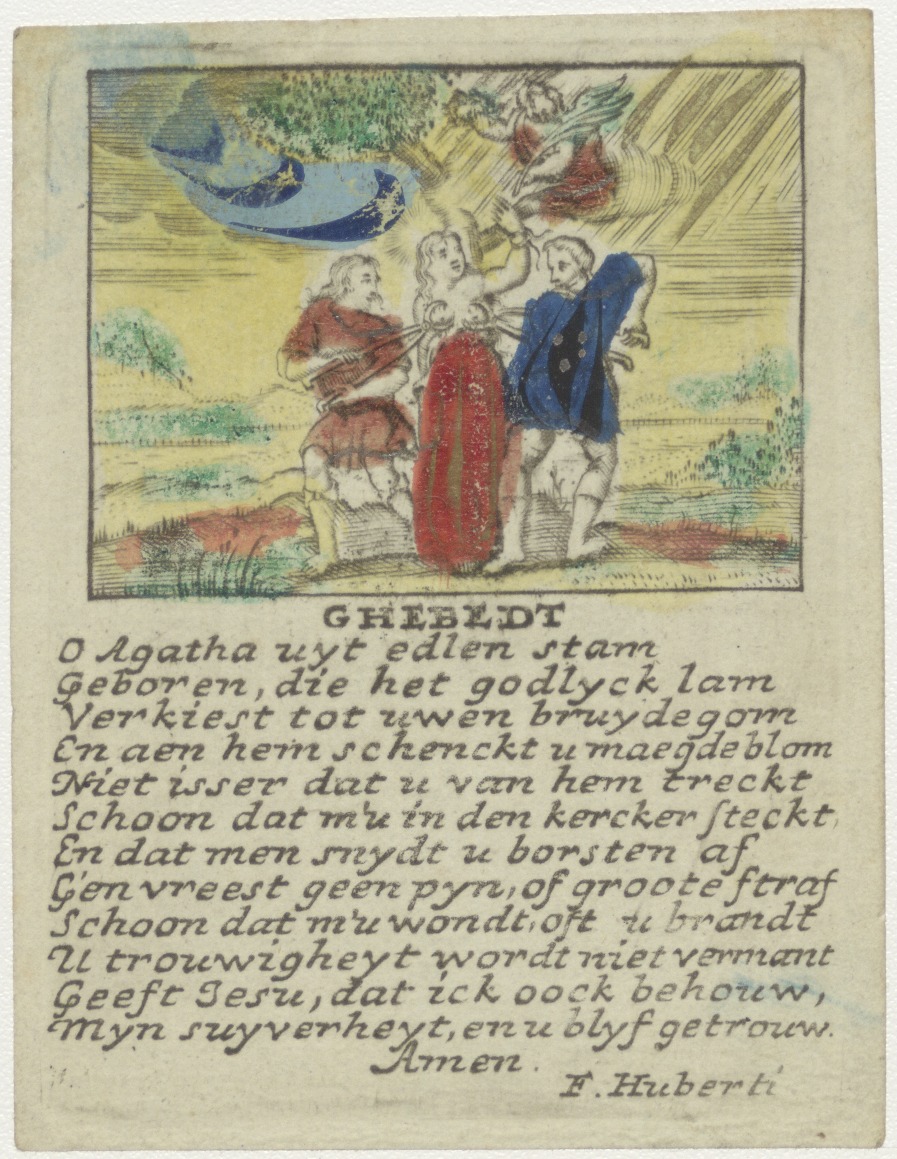 GHEBEDT
O Agatha uyt edlen stam
Geboren, die het godlyck lam
Verkiest tot uwen bruydegom
En aen hem schenckt u maegdeblom
Niet isser dat u van hem treckt
Schoon dat m'u in den kercker steckt,
En dat men snydt u borsten af
G'en vreest geen pyn, of groote straf
Schoon dat m'u wondt, oft u brandt
U trouwigheyt wordt niet vermant
Geeft Iesu, dat ick oock behouw,
Myn suyverheyt, en u blyf getrouw.
Amen.
F. Huberti